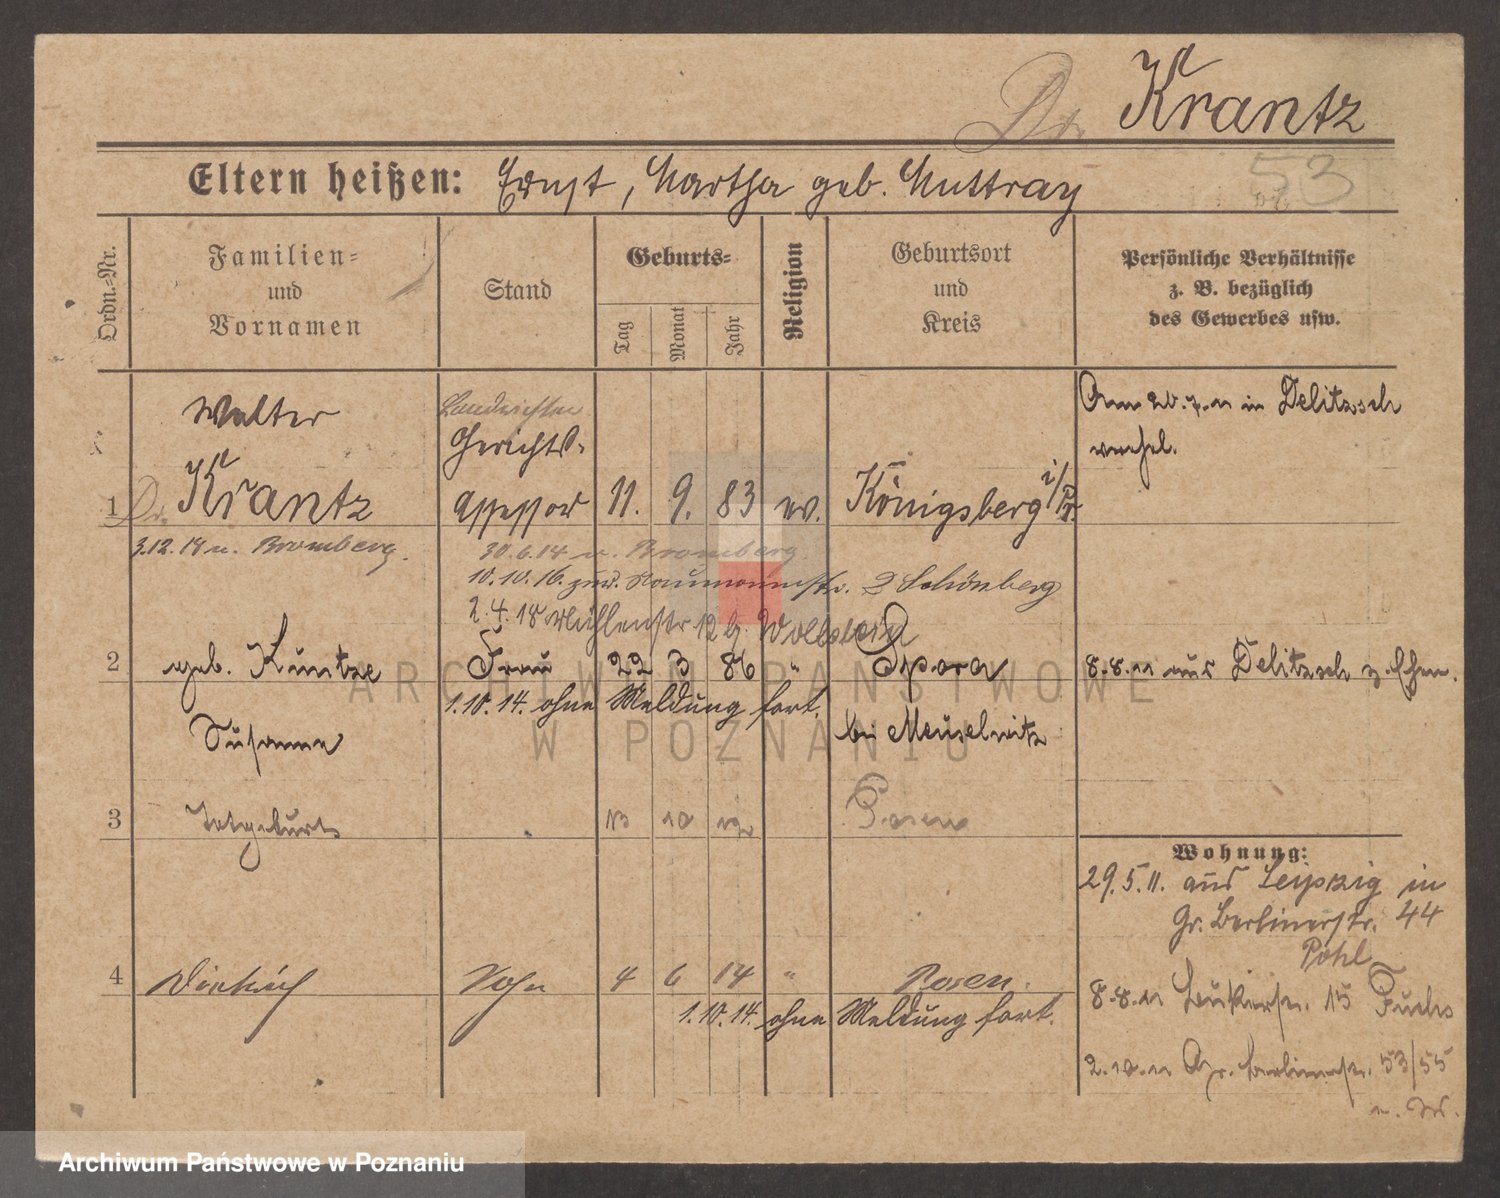 Dr. Krantz
53
Eltern heißen: Ernst, Martha geb. Muttray
Ordn.-Nr.
Familien-
und
Vornamen
Stand
Geburts-
Tag
Monat
Jahr
Religion
Geburtsort
und
Kreis
Persönliche Verhältnisse
z. B. bezüglich
des Gewerbes usw.
Walter
Landrichter
Gerichts-
Am 20.7.11 in Delitzsch
verehel.
1 Dr. Krantz Assessor 11. 9. 83 ev. Königsberg i/Pr.
3.12.19 n. Bromberg.
30.6.14 n. Bromberg.
10.10.16. zur. Naumannstr. 3 Schönberg
2.4.18 Mühlenstr 12 b. Wollstein
2 geb. Kuntze Frau 22 3 86 " Spora
8.8.11 aus Delitzsch z. Ehem.
1.10.14. ohne Meldung fort.
Susanne
bei Meuselwitz
3 Totgeburt 13 10 12 Posen
Wohnung:
29.5.11. aus Leipzig in
Gr. Berlinerstr. 44
Pohl
4 Dietrich Sohn 4 6 14 " Posen.
8.8.11 15 Fuchs
1.10.14. ohne Meldung fort.
2.10.11 Gr. Berlinerstr. 53/55
ARCHIWUM PAŃSTWOWE
W POZNANIU
Archiwum Państwowe w Poznaniu